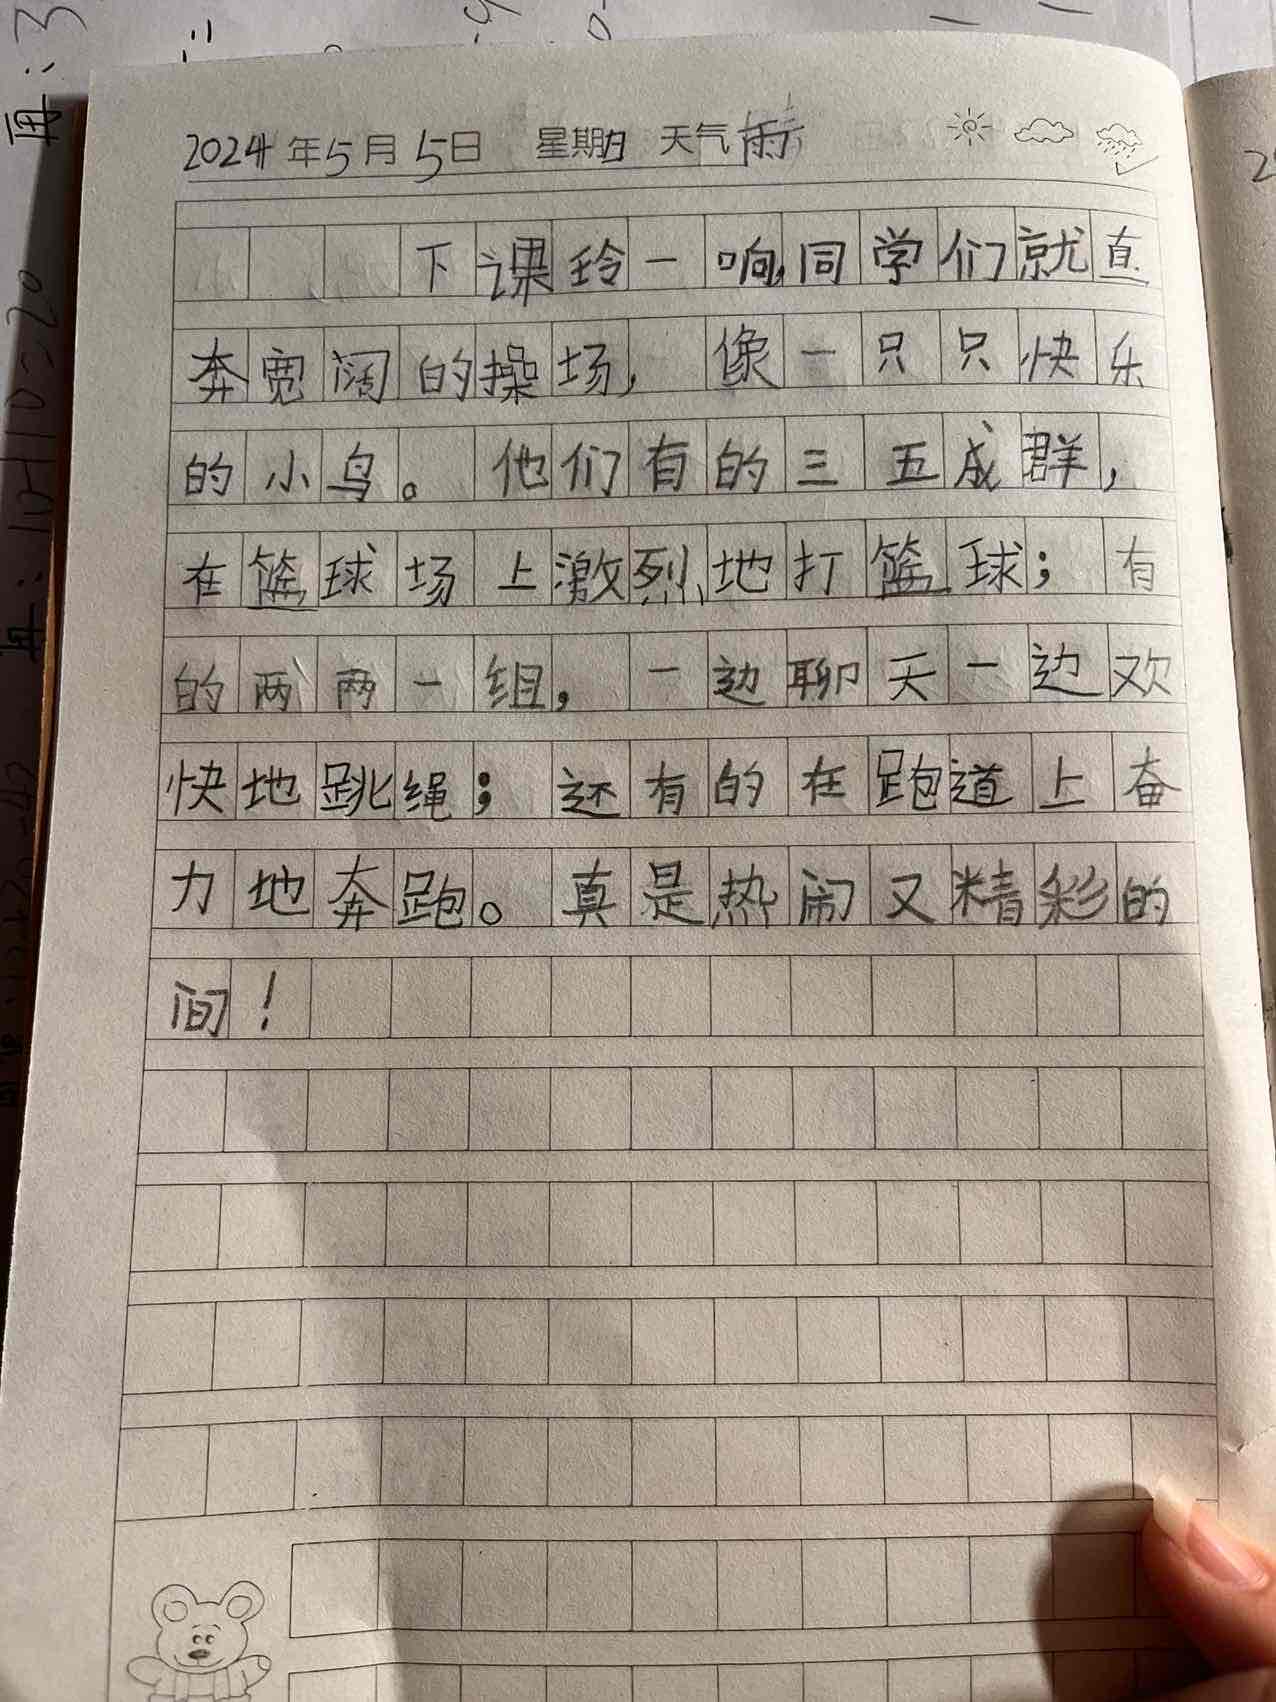 2024年5月5日 星期日 天气雨
下课玲一响,同学们就直
奔宽阔的操场, 像一只只快乐
的小鸟。他们有的三五成群,
在篮球场上激烈地打篮球; 有
的两两一组, 一边聊天一边欢
快地跳绳; 还有的在跑道上奋
力地奔跑。真是热闹又精彩的
间!